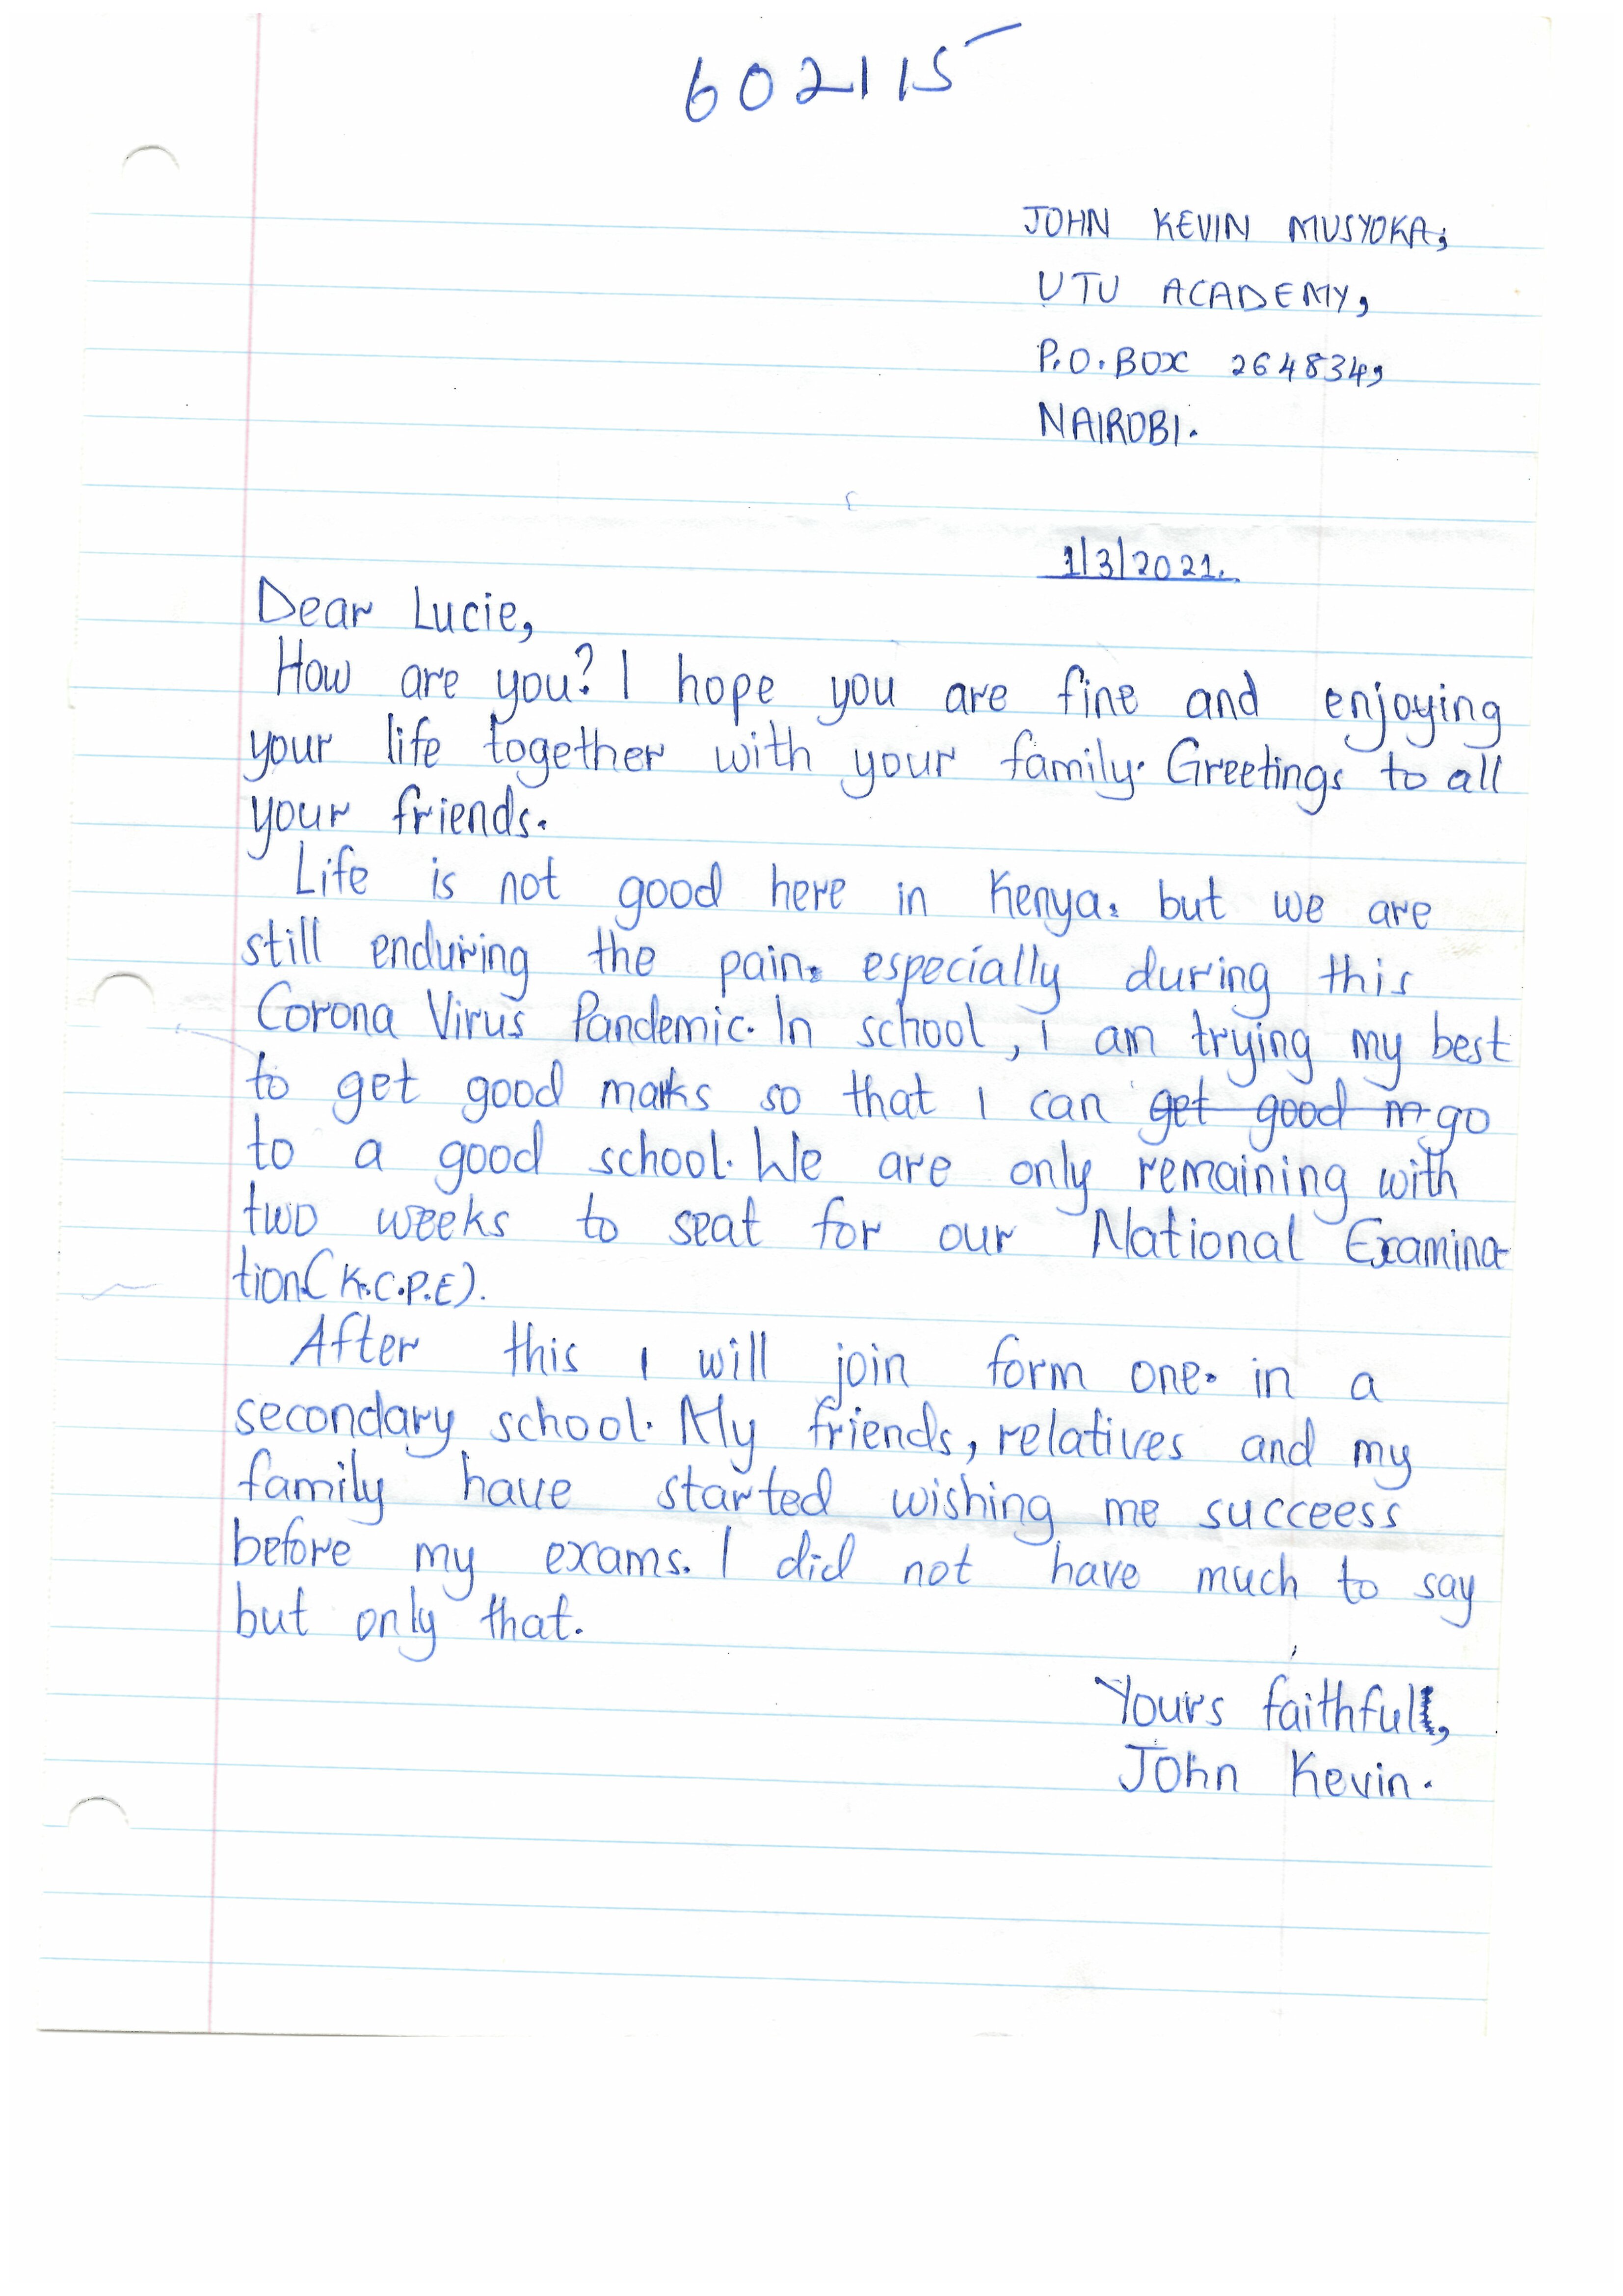 602115
JOHN KEVIN MUSYOKA,
UTU ACADEMY,
P.O. BOX 264834,
NAIROBI.
1/3/2021.
Dear Lucie,
How are you? I hope you are fine and enjoying
your life together with your family. Greetings to all
your friends.
Life is not good here in Kenya. but we are
still enduring the pain. especially during this
Corona Virus Pandemic. In school, i am trying my best
to get good marks so that I can ~~get good m~~ go
to a good school. We are only remaining with
two weeks to seat for our National Examina-
tion(K.C.P.E).
After this I will join form one. in a
secondary school. My friends, relatives and my
family have started wishing me succeess
before my exams. I did not have much to say
but only that.
Yours faithful,
John Kevin.